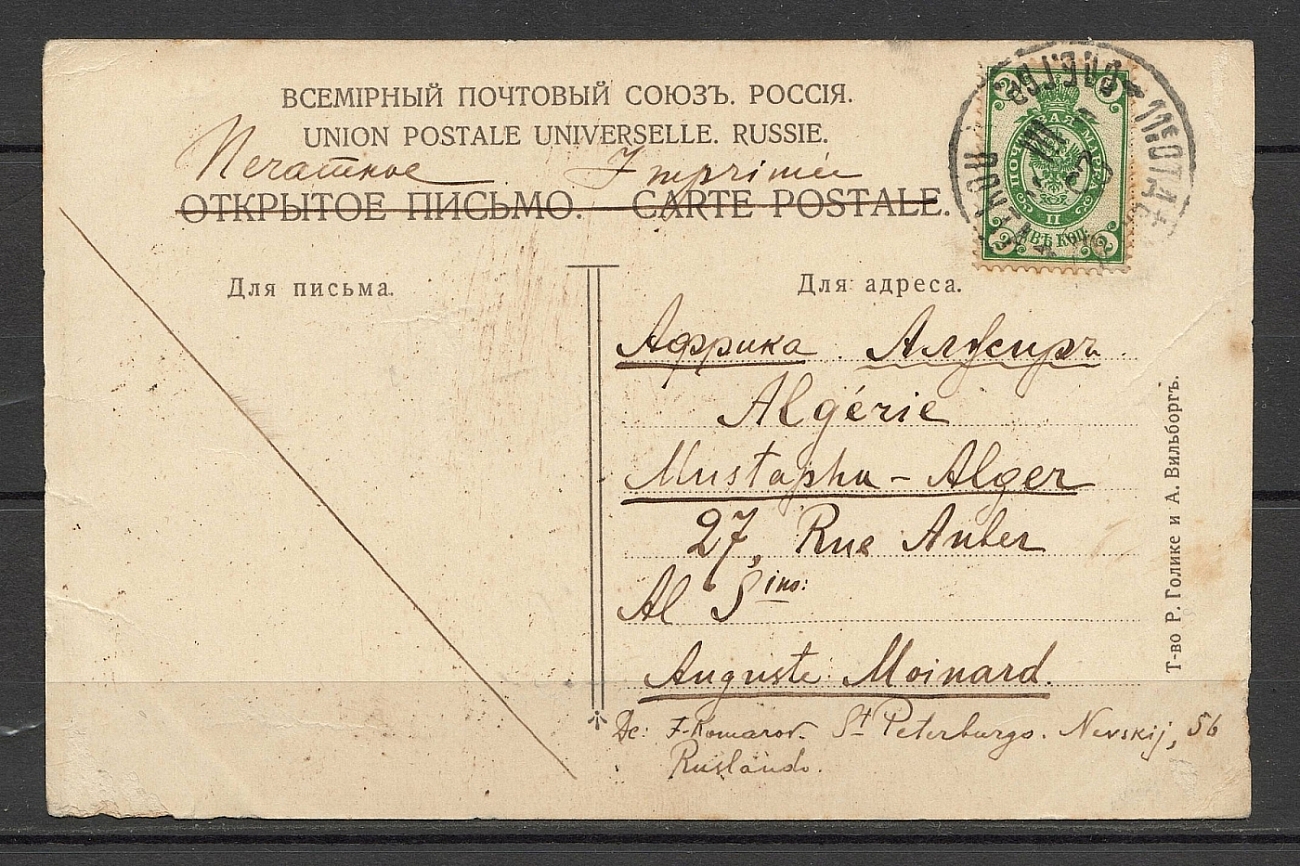 ВСЕМІРНЫЙ ПОЧТОВЫЙ СОЮЗЪ. РОССІЯ.
UNION POSTALE UNIVERSELLE. RUSSIE.
Печатное Imprimée
ОТКРЫТОЕ ПИСЬМО. CARTE POSTALE.
ПОЧТОВАЯ МАРКА
II
ДВѢ КОП.
2 2 2 2
Для письма.
Для адреса.
Африка Алжиръ.
Algérie
Mustapha - Alger
27, Rue Auber
Al S ino:
Auguste Moinard.
De: F. Komarov. St Peterburgo. Nevskij, 56
Ruslando.
Т-во Р. Голике и А. Вильборгъ.